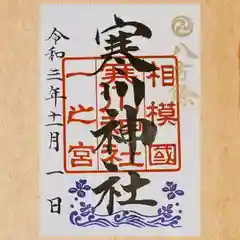 八方除
相模國
寒川神社
寒川神社
一之宮
令和三年十一月一日